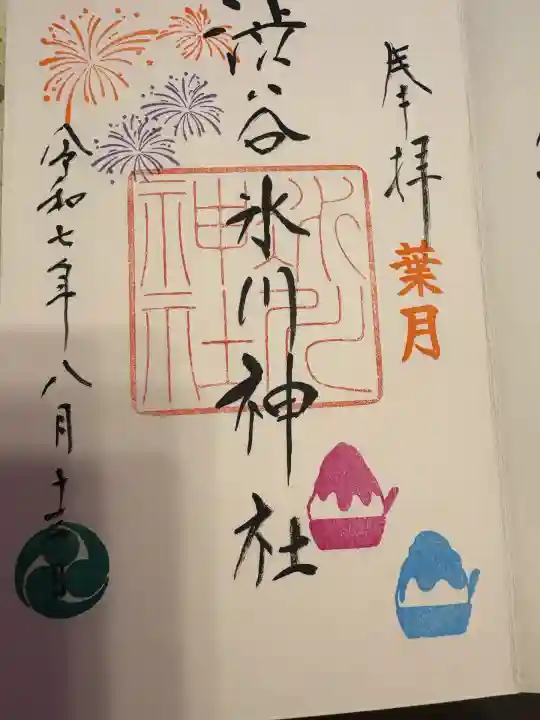 奉拝
葉月
渋谷氷川神社
氷川
神社
令和七年八月十